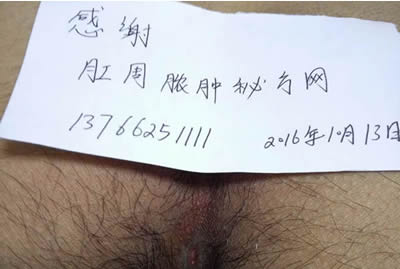 感谢
肛周脓肿秘方网
13766251111 2016年10月13日